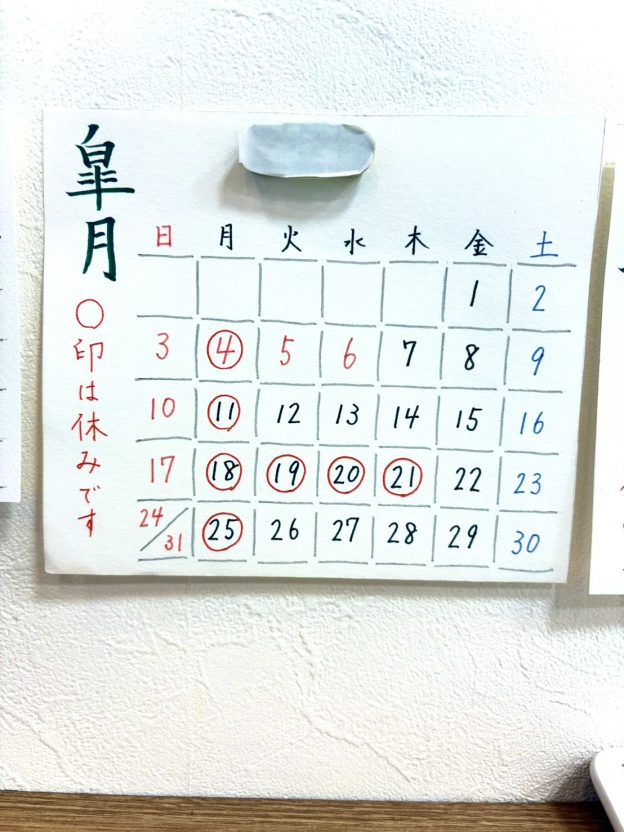 皐月
〇印は休みです
日 月 火 水 木 金 土
1 2
3 4 5 6 7 8 9
10 11 12 13 14 15 16
17 18 19 20 21 22 23
24/31 25 26 27 28 29 30